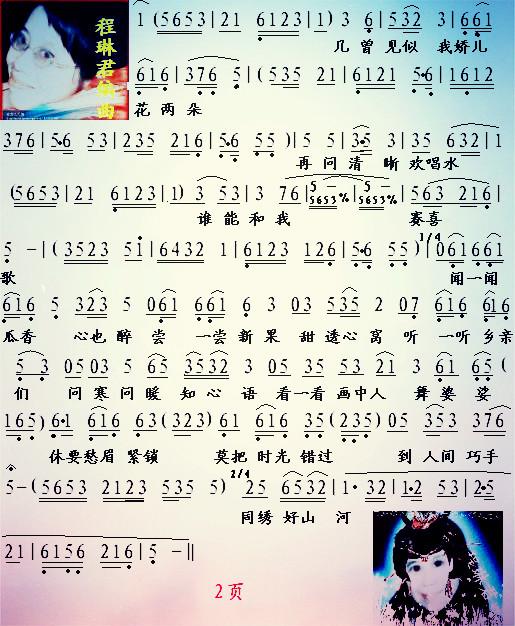 程琳君编曲
1 (5653 | 21 6123 | 1) 3 6 | 532 3 | 661
几 曾 见似 我娇儿
616 | 376 5 | (535 21 | 6121 5·6 | 1612
花 两 朵
376 | 5·6 53 | 235 216 | 5·6 55 ) | 5 5 | 3·5 3 | 35 632 | 1
再 问 清 晰 欢唱水
(5653 | 21 6123 | 1) 3 53 | 3 76 | 5 – 5653% | 5 – 5653% | 563 216 |
谁 能 和 我 赛喜
5 – | ( 3523 51 | 6432 1 | 6123 126 | 5·6 55 ) | 1/4 061 661
歌 闻一闻
616 5 323 5 061 661 6 3 03 535 2 07 616 616
瓜香 心也 醉 尝 一尝 新 果 甜 透心 窝 听 一听 乡亲
5 3 05 05 53 5 65 3532 3 05 35 53 21 3 61 65 (
们 问 寒 问 暖 知 心 语 看一看 画中人 舞 婆 娑
165) 6·1 616 63 (323) 61 616 35 (235) 05 353 376
休要 愁眉 紧锁 莫把 时光 错过 到 人间 巧手
5 – (5653 2123 535 5) 2/4 25 6532 | 1· 32 | 1·2 53 | 2·5
同绣 好山 河
21 | 6156 216 | 5 – ||
2 页